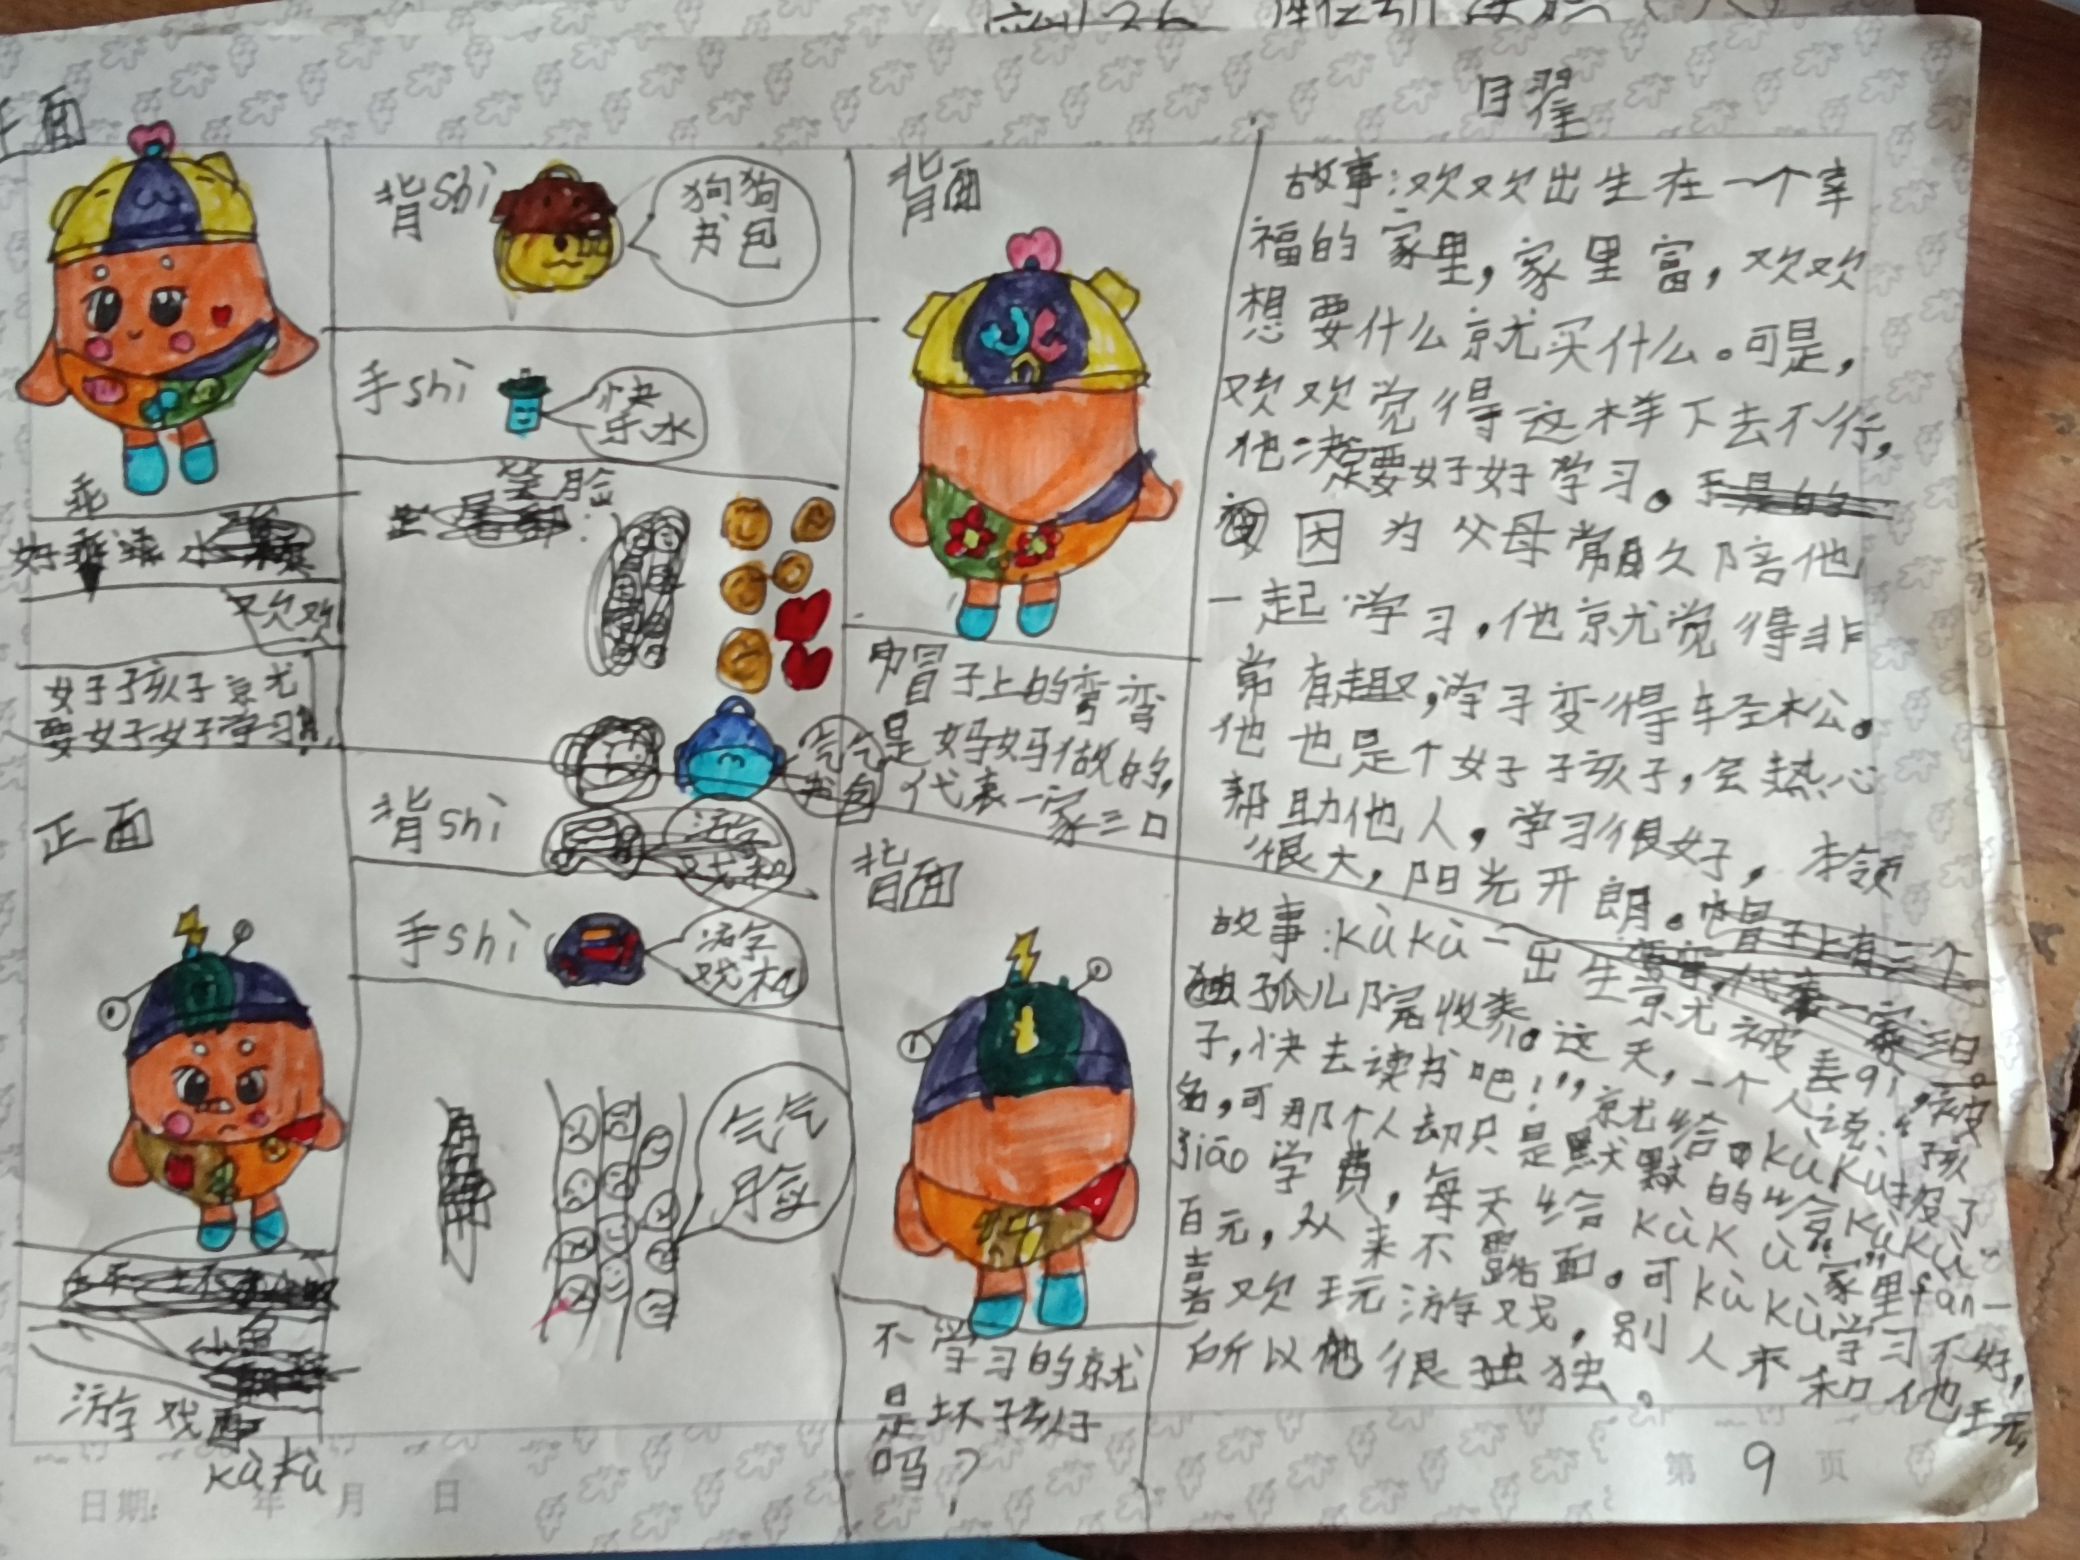 正面
目翟
背shi
狗狗
书包
手shi
快
乐水
笑脸
乖
欢欢
好孩子就
要好好学习
背面
帽子上的弯弯
是妈妈做的,
代表一家三口
故事:欢欢出生在一个幸
福的家里,家里富,欢欢
想要什么就买什么。可是,
欢欢觉得这样下去不行,
他决定要好好学习。
因为父母常久陪他
一起学习,他就觉得非
常有趣,学习变得轻松。
他也是个好孩子,会热心
帮助他人,学习很好,本领
很大,阳光开朗。
正面
背shi
气气
书包
手shi
游
戏机
气气
脸
游戏
kùkù
背面
不学习的就
是坏孩子
吗?
故事:kùkù一出生就被丢qì,被
孤儿院收养。这天,一个人说:“孩
子,快去读书吧!”,就给kùkù报了
名,可那个人却只是默默的给kùkù
jiāo学费,每天给kùkù家里fàn一
百元,从来不露面。可kùkù学习不好,
喜欢玩游戏,别人不和他玩,
所以他很独独。
日期: 年 月 日
第 9 页